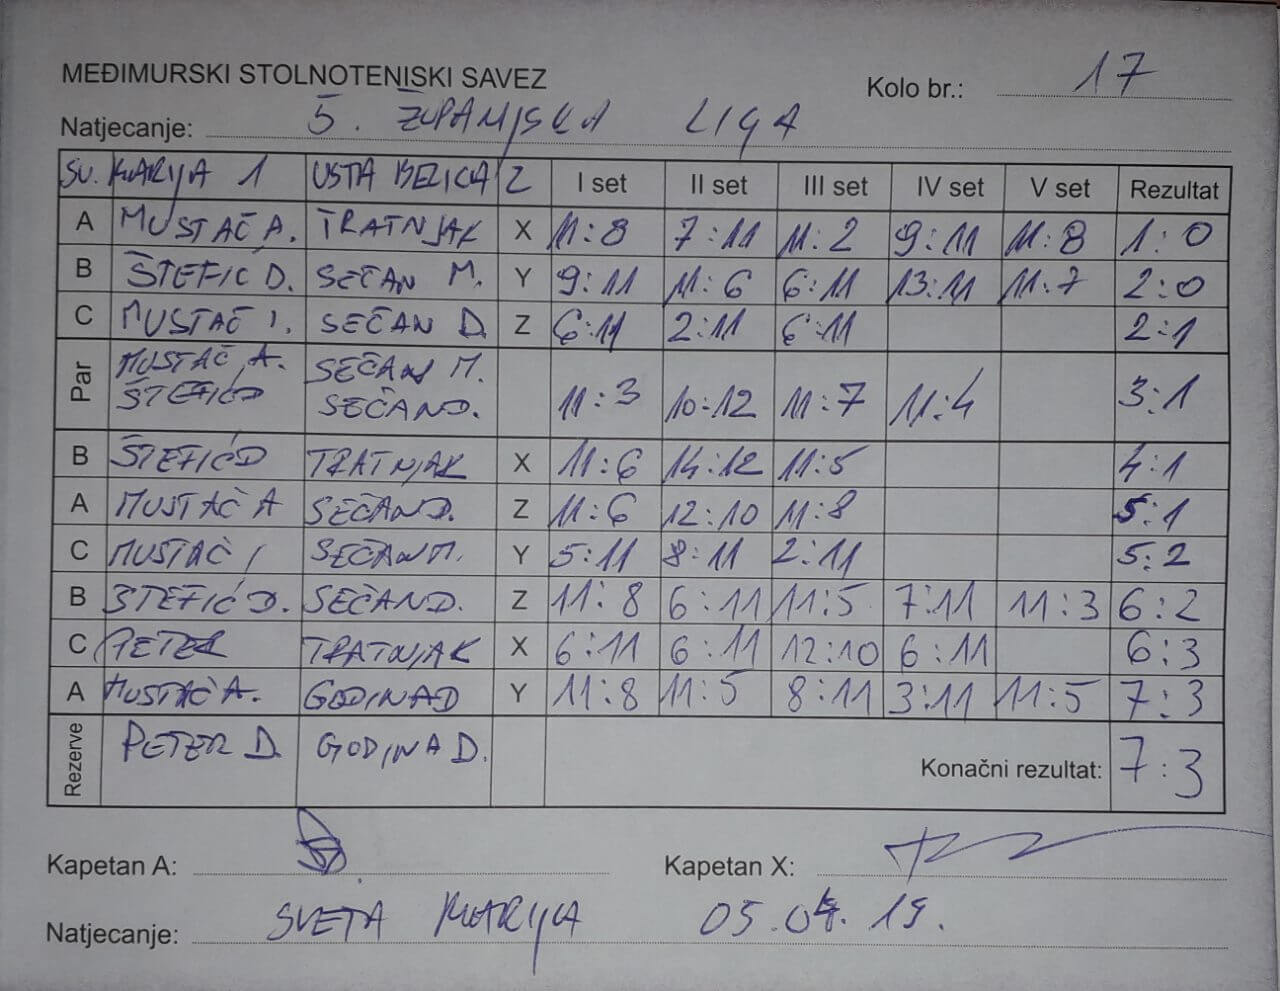 MEĐIMURSKI STOLNOTENISKI SAVEZ
Kolo br.: 17
Natjecanje: 5. ŽUPANIJSKA LIGA
SV. MARIJA 1 USTA BEZICA 2 I set II set III set IV set V set Rezultat
A MUSTAČ A. TRATNJAK X 11:8 7:11 11:2 9:11 11:8 1:0
B ŠTEFIĆ D. SEČAN M. Y 9:11 11:6 6:11 13:11 11:7 2:0
C MUSTAČ I. SEČAN D. Z 6:11 2:11 6:11 2:1
Par MUSTAČ A. SEČAN M.
ŠTEFIĆ D SEČAN D. 11:3 10:12 11:7 11:4 3:1
B ŠTEFIĆ D TRATNJAK X 11:6 14:12 11:5 4:1
A MUSTAČ A SEČAN D. Z 11:6 12:10 11:8 5:1
C MUSTAČ I SEČAN M. Y 5:11 8:11 2:11 5:2
B ŠTEFIĆ D. SEČAN D. Z 11:8 6:11 11:5 7:11 11:3 6:2
C PETER TRATNJAK X 6:11 6:11 12:10 6:11 6:3
A MUSTAČ A. GODINA D Y 11:8 11:5 8:11 3:11 11:5 7:3
Rezerve PETER D. GODINA D. Konačni rezultat: 7:3
Kapetan A: Kapetan X:
Natjecanje: SVETA MARIJA 05.04.19.